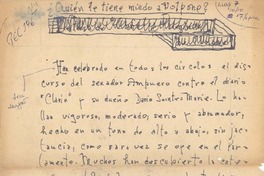 ¿Quién le tiene miedo a Volpone?
PEC 196
Han celebrado en todos los círculos el dis-
curso del senador Ampuero contra el diario
"Clarín" y su dueño Darío Sainte Marie. Lo ha-
llan vigoroso, moderado, serio y abrumador,
hecho en un tono de alto a abajo, sin jac-
tancia, como rara vez se oye en el par-
lamento. Muchos han descubierto la